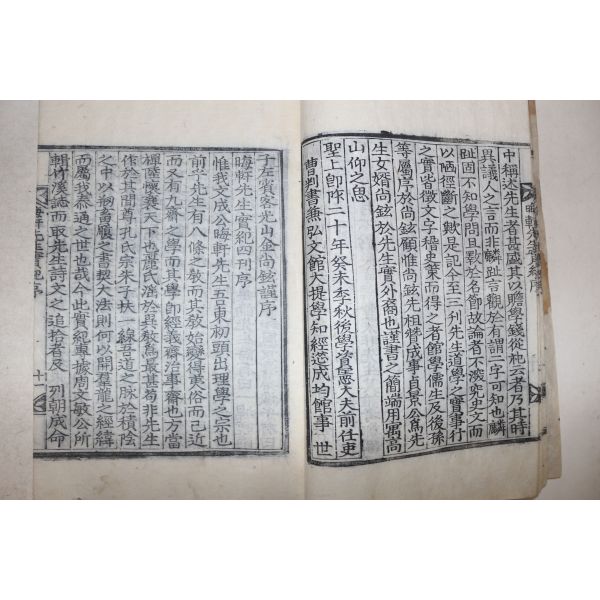 中稱述先生者甚盛其以贍學錢從祂云者乃其時
異議人之言而非麟趾言觀於有謂二字可知也麟
趾固不知學問且斁於名節故論者不深究史文而
以陋徑斷之歟是記今至三刊先生道學之實事行
之實皆徵文字稽史策而得之者館學儒生及後孫
等屬序於尚鉉顧惟尚鉉先祖贊成事貞景公爲先
生女婿尚鉉於先生實外裔也謹書之簡端用寓嵩
山仰之思
聖上卽阼二十年癸未季秋後學資憲大夫前任吏
曹判書兼弘文館大提學知經筵成均館事 世
子左賓客光山金尚鉉謹序
晦軒先生實紀四刊序
惟我文成公晦軒先生五東初頭出理學之宗也
前乎先生有八條之敎而其敎始變得夷俗而已近
而又有九齋之學而其學卽經義齋治事齋也方當
裸陸懷襄天下也麗氏溺於異敎爲最甚苟非先生
作於其間尊孔氏宗朱子扶一線吾道之脈於積陰
之中以剙贍廩之書契大法則何以開羣龍之經緯
而屬我泰通之世也哉今此實紀專據周文敏公所
輯竹溪誌而取先生詩文之追拾者及 列朝咸命
晦軒先生實紀序